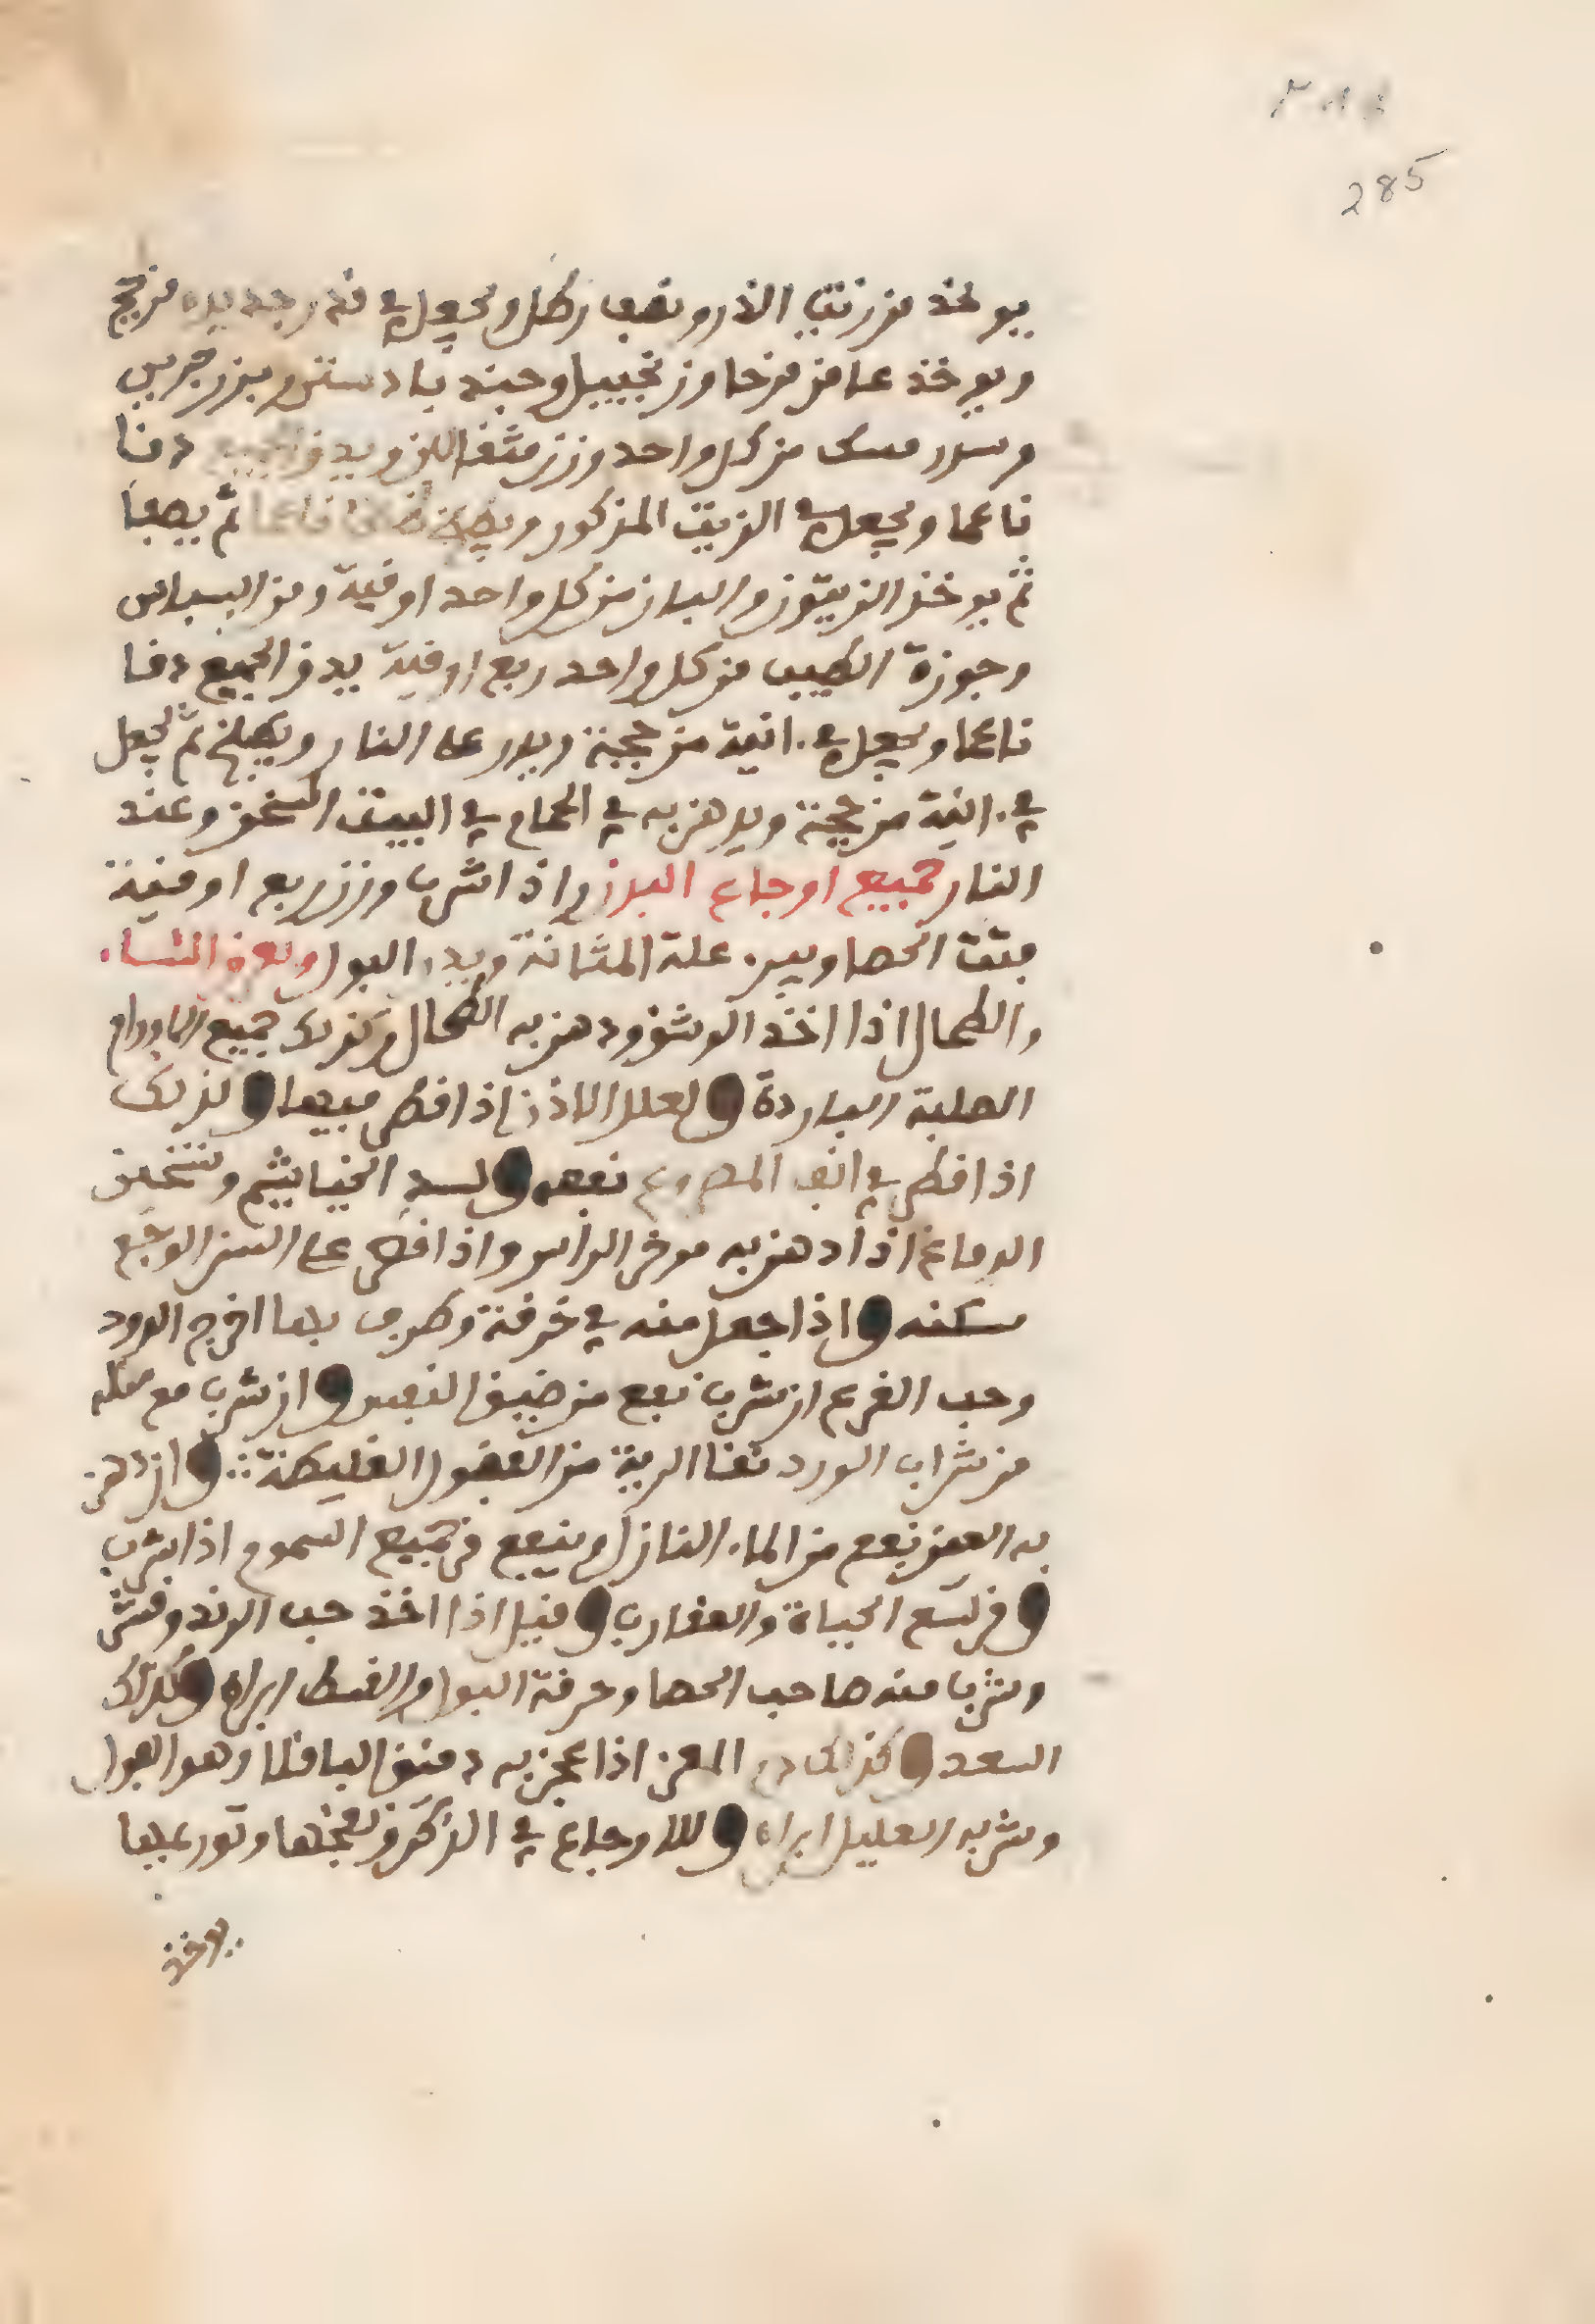 285
يوخذ من زيت الاذرو نصف رطل ويجعل في قدر جديده مزججة
ويوخذ عاقرقرحا وزنجبيل وجند بادستر وبزر حريف
وسدر مسك من كل واحد وزن مثقالين ويدق الجميع دقا
ناعما ويجعل في الزيت المذكور ويطبخ طبخا ناعما ثم يصفا
ثم يوخذ الزيتون والبان من كل واحد اوقية ومن البسباس
وجوزة الطيب من كل واحد ربع اوقية يدق الجميع دقا
ناعما ويجعل في ءانية مزججة ويدر على النار ويطبخ ثم يجعل
في ءانية مزججة ويدهن به في الحمام في البيت السخن وعند
النار لجميع اوجاع البدن واذا شرب وزن ربع اوقية
فتت الحصا ويبرء علة المثانة ويدر البول وعرق النساء
والطحال اذا اخذ الوشق ودهن به الطحال وكذلك جميع الاورام
الصلبة الباردة ولعلل الاذن اذا قطر فيها وكذلك
اذا قطر في انف المصروع نفعه ولسدد الخياشيم وتسخين
الدماغ اذا دهن به موخر الراس واذا قطر على السن الوجع
سكنه واذا جعل منه في خرقة وطرف بها اخرج الدود
وحب القرع ان شرب نفع من ضيق النفس وان شرب مع مثله
من شراب الورد نقا الرية من الفضول الغليظة وان دهن
به العين نفع من الماء النازل وينفع من جميع السموم اذا شرب
ومن لسع الحياة والعقارب وقيل اذا اخذ حب الرند وقشر
وشرب منه صاحب الحصا وحرقة البول والقسط ابراه وكذلك
السعد وكذلك دم المعز اذا عجن به دقيق الباقلا وهو الفول
وشربه العليل ابراه وللاوجاع في الذكر ونفخها وتورمها
يوخذ